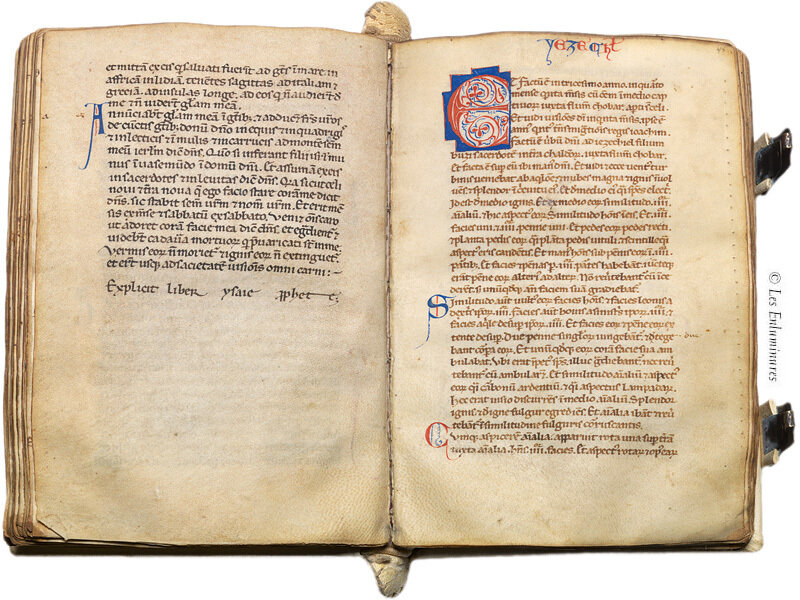 et mittã ex eis q̃ saluati fuerĩt. ad gẽs ĩ mare. in
affricã. in lidiã. tenẽtes sagittas. ad italiam. ⁊
greciã. ad insulas longe. ad eos q̃ ñ audierũt d̃
me. ⁊ ñ viderũt glãm meã.
Annũciabt glãm meã ĩ gẽtib;. ⁊ adducẽt frẽs ur̃os
de cũctis gẽtib; donũ dño in equis. ⁊ in quadrigis
⁊ in lecticis ⁊ in mulis. ⁊ in carrucis. ad montẽ scm̃
meũ ierl̃m dic̃ dñs. Quo si inferant filii isrl̃ mu
nus ĩ uase mũdo ĩ domũ dñi. Et assumã ex eis
in sacerdotes ⁊ in leuitas dic̃ dñs. Q̃a sic̃ celi
noui. ⁊ t̃ra noua. q̃ ego facio stare corã me dicit
dñs. sic stabit sem̃ ur̃m ⁊ nom̃ ur̃m. Et erit mẽ
sis ex mẽse ⁊ sabbatũ ex sabbato. Veniz̃ oĩs caro
ut adoret corã facie mea dic̃ dñs. et egdient̃ ⁊
videbt̃ cadau̾a mortuor̃ q̃ p̃uaricati s̃t in me.
Vermis eor̃ ñ moriet̃ ⁊ ignis eor̃ ñ extinguet̃
et er̃t usq; ad societatẽ uisionis omni carni :~
Explicit liber ysaie p̃phete.
yezechl̃
Et factũ ẽ in tricesimo anno. in quarto
mense quinta m̃sis. cũ eẽm ĩ medio cap
tiuor̃ iuxta flum̃ chobar. apti s̃ celi
Et uidi uisiões dĩ. in quĩta m̃sis. ipse ẽ
ann̾ quĩt̾ tr̃nsmigr̃tiõis regis ioachim.
Factũ ẽ ũbũ dñi ad iezechiel filium
buzi sacerdotẽ in t̃ra chaldeor̃. iuxta flum̃ chobar.
Et facta ẽ sup̃ eũ ibi man̾ dñi. Et uidi ⁊ ecce uent̾ tur
binis ueniebat ab aq̃lõe. ⁊ nubes magna ⁊ ignis ĩuol
uẽs. ⁊ splendor ĩ circuitu ei̾. Et d̃ medio ei̾ q̃si sp̃es elect̃
.i. de medio ignis. Et ex medio eor̃ similitudo .iiii.
aĩaliũ. ⁊ hic aspect̾ eor̃. Similitudo hoĩs ĩ eis. Et .iiii.
facies uni. ⁊ .iiii. penne uni. Et pedes eor̃ pedes recti.
⁊ planta pedis eor̃ q̃si plãta pedis uituli. ⁊ scintille q̃si
aspect̾ eris candẽtis. Et man̾ hoĩs sub pẽnis eor̃ ĩ .iiii.
partib;. Et facies ⁊ pẽnas p̃ .iiii. p̃tes habebãt. iũcteq;
erãt pẽne eor̃. alteri̾ ad alter̃. Ñ reũtebant̃ cũ ĩce
derẽt. s; unũq̃dq; añ faciem suã gradiebat̃.
Similitudo aut̃ uult̾ eor̃. facies hoĩs. ⁊ facies leonis a
dext̃s ip̃or̃ .iiii. facies aut̃ bouis a sinist̃s ip̃or̃ .iiii. ⁊
facies aq̃le desup̃ ip̃or̃ .iiii. Et facie eor̃ ⁊ pẽne eor̃ ex
tente desup̃. Due penne singl̃or̃ iungebãt̃. ⁊ due tege
bant corp̃a eor̃. Et unũq̃dq; eor̃ corã facie sua am
bulabat. Vbi erat ĩpet̾ sp̃s. illuc g̃diebant̃. nec reũ
tebant̃ cũ ambular̃t. Et similitudo aĩaliũ ⁊ aspect̾
eor̃. q̃si carbonũ ardentiũ. ⁊ q̃si aspectus lampadar̃.
hec erat uisio discurrẽs ĩ medio aĩaliũ. Splendor
ignis. ⁊ d̃ igne fulgur egrediẽs. Et aĩalia ibãt ⁊ reũ
tebãt̃ ĩ similitudinẽ fulguris coruscantis.
Cunq; aspicerẽ aĩalia. apparuit rota una sup̃ t̃rã
iuxta aĩalia. hñs .iiii. facies. Et aspect̾ rotar̃ ⁊ op̾ ear̃
© Les Enluminures